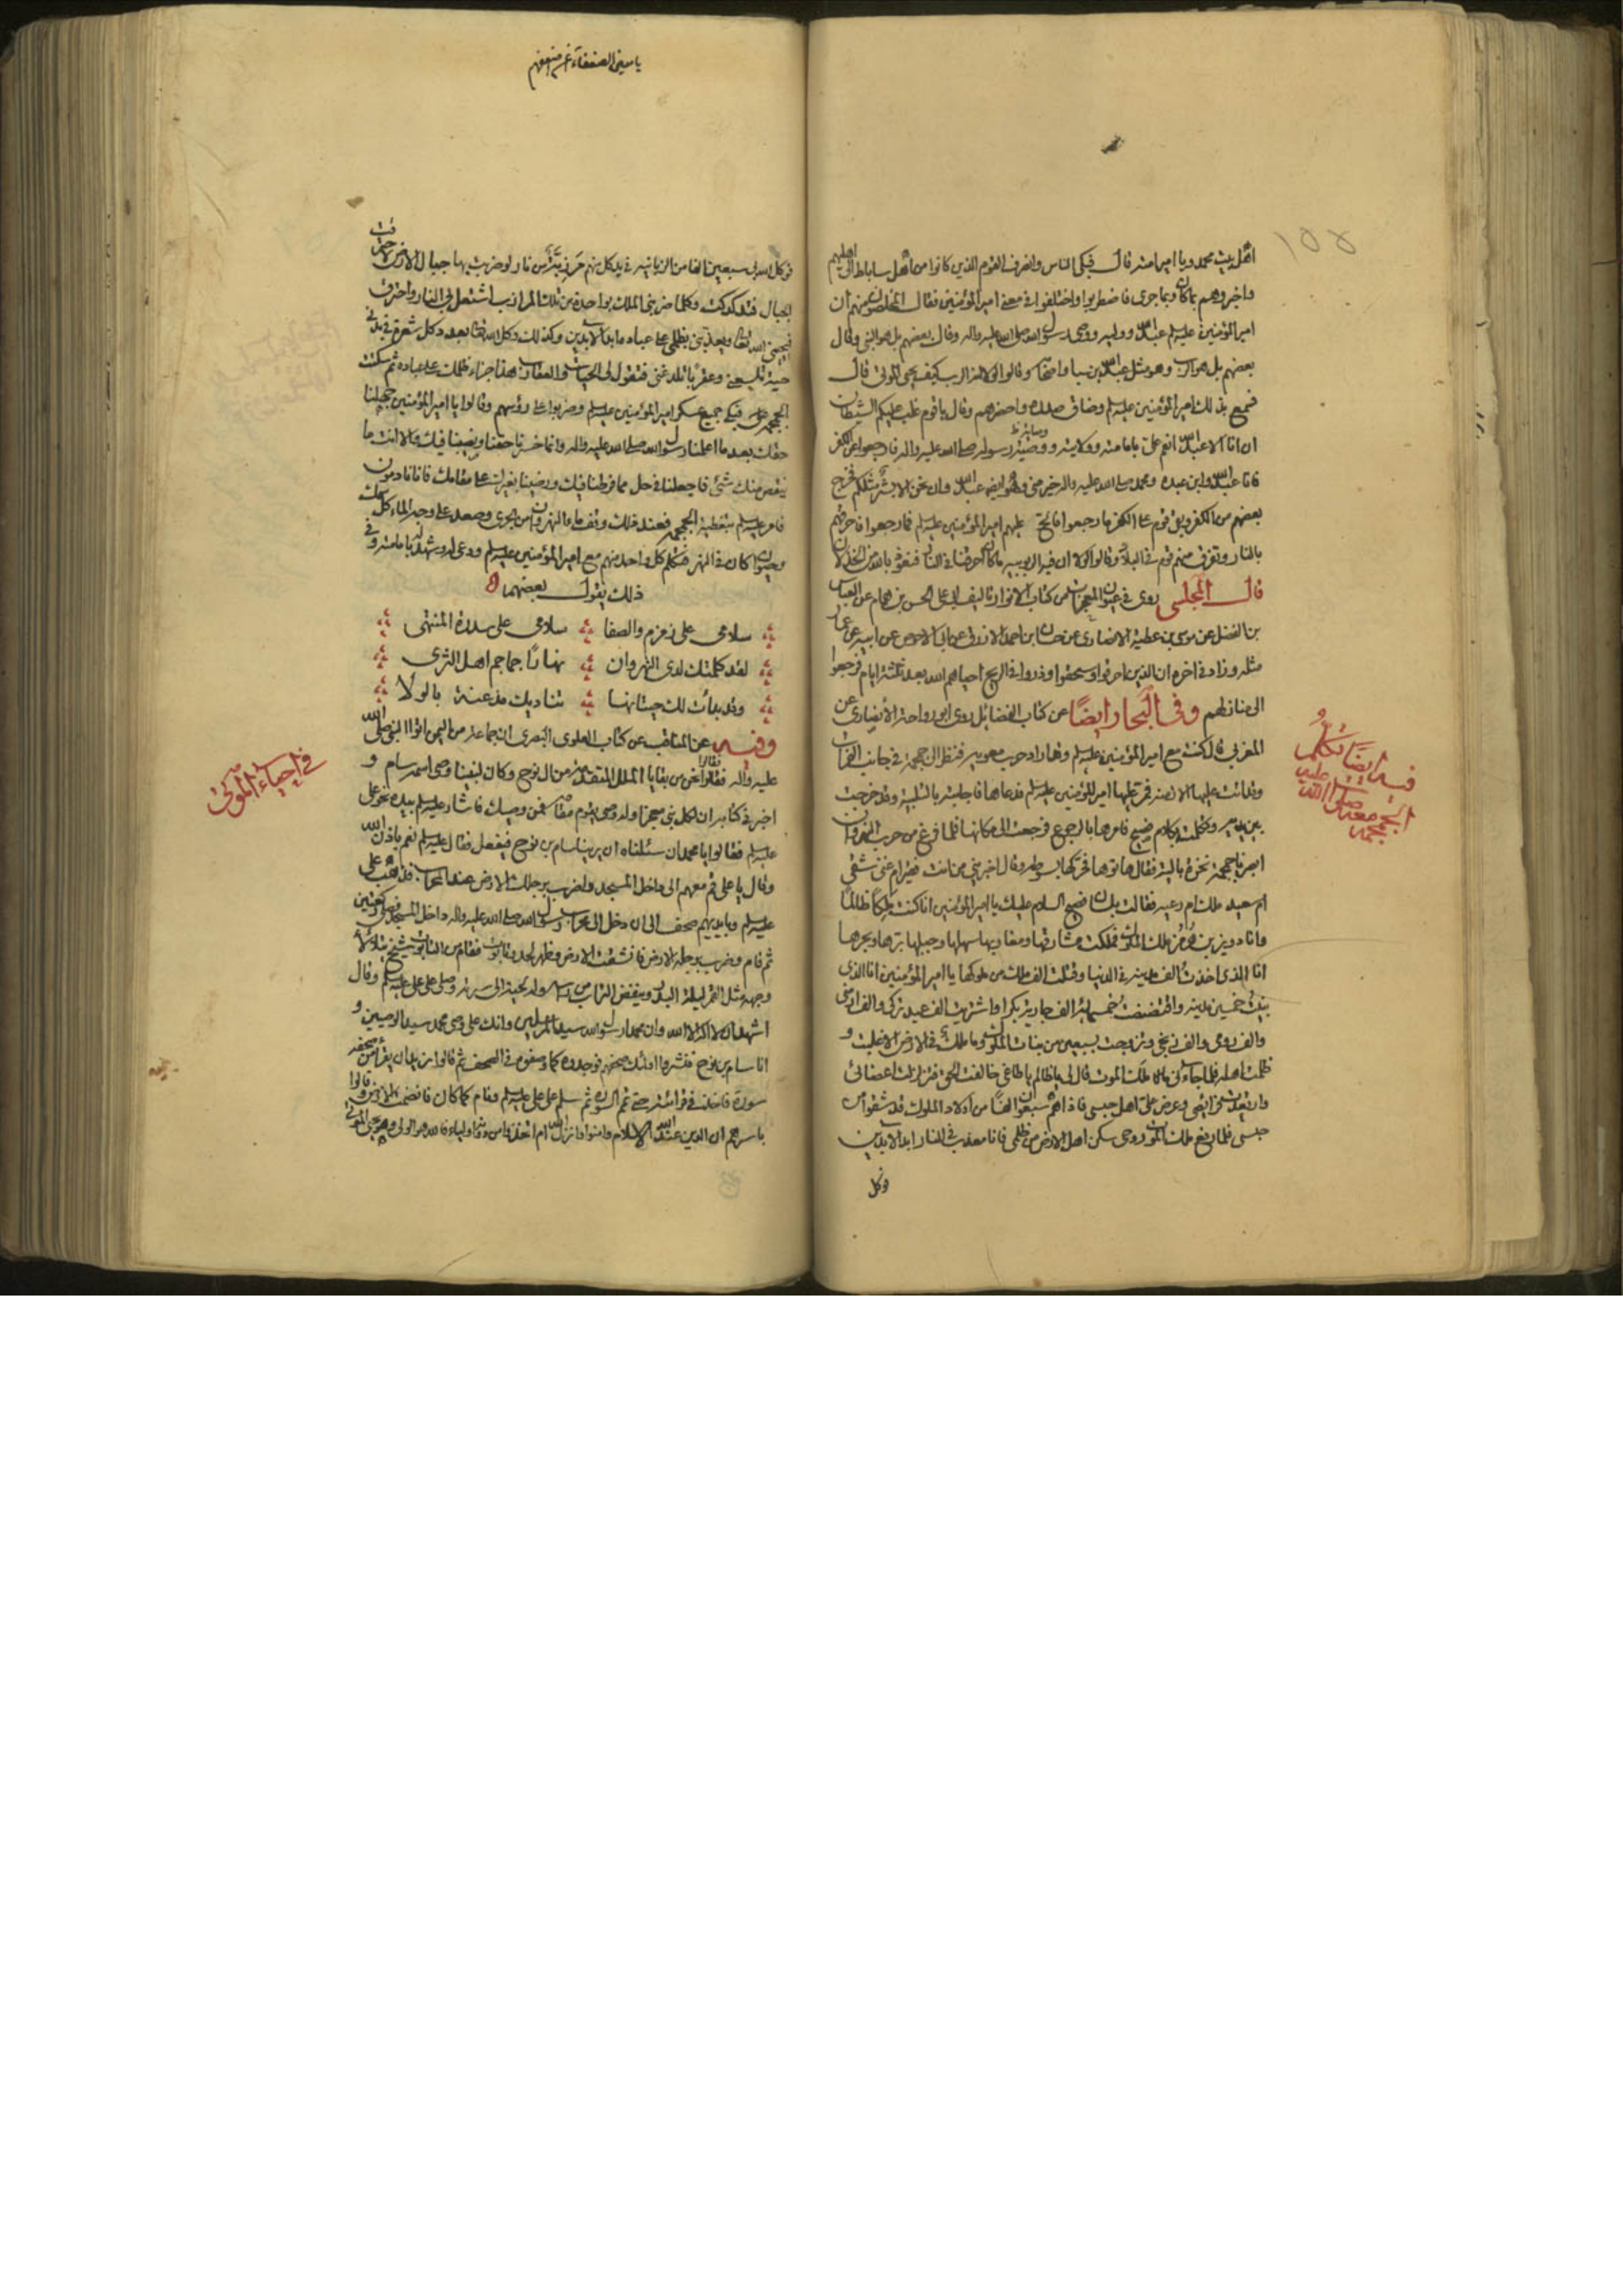 ١٥٥
اهل بيت محمد ويا اميرا منه قال فبكى الناس وانصرف القوم الذين كانوا من اهل ساباط الى اهليهم
واخبروهم بما كان وبما جرى فاضطربوا واختلفوا في معنى امير المؤمنين فقال المخلصون منهم ان
امير المؤمنين عليه السلم عبد الله ووليه ووصي رسول الله صلى الله عليه واله وقال بعضهم بل هو النبي وقال
بعضهم بل هو الرب وهو مثل عبد الله بن سبا واصحابه وقالوا لولا انه الرب كيف يحيى الموتى قال
فسمع بذلك امير المؤمنين عليه السلم وضاق صدره واحضرهم وقال يا قوم غلب عليكم الشيطان
ان انا الا عبد الله انعم علي بامامته وولايته ووصية رسوله صلى الله عليه واله فارجعوا عن الكفر
فانا عبد الله وابن عبده ومحمد صلى الله عليه واله خير مني وهو ايضا عبد الله وان نحن الا بشر مثلكم فخرج
بعضهم من الكفر وبقي قوم على الكفر ما رجعوا فالح عليهم امير المؤمنين عليه السلم فما رجعوا فاحرقهم
بالنار وتفرق منهم قوم في البلاد وقالوا لولا ان فيه الربوبية ما كان احرقنا في النار فنعوذ بالله من الخذلان
قال المجلسي روى في عيون المعجزات من كتاب الانوار تاليف ابي علي الحسن بن همام عن العباس
بن الفضل عن موسى بن عطية الانصاري عن حسان بن احمد الازرق عن ابي الاحوص عن ابيه عن عمار
مثله وزاد في اخره ان الذين احرقوا وسحقوا وذروا في الريح احياهم الله بعد ثلثة ايام فرجعوا
الى منازلهم وفي البحار ايضا عن كتاب الفضائل روى ابو رواحة الانصاري عن
المغربي قال كنت مع امير المؤمنين عليه السلم وقد اراد حرب معوية فنظر الى جمجمة في جانب الفرات
وقد اتت عليها الازمنة فمر عليها امير المؤمنين عليه السلم فدعاها فاجابته بالتلبية وقد خرجت
بين يديه وتكلمت بكلام فصيح فامرها بالرجوع فرجعت الى مكانها فلما فرغ من حرب النهروان
ابصرنا جمجمة نخرة بالية فقال هاتوها فحركها بسوطه وقال اخبريني من انت فقير ام غني شقي
ام سعيد ملك ام رعية فقالت بلسان فصيح السلام عليك يا امير المؤمنين انا كنت ملكا ظالما
وانا دويز بن هرمز ملك الملوك فملكت مشارقها ومغاربها سهلها وجبلها برها وبحرها
انا الذي اخذت الف مدينة في الدنيا وقتلت الف ملك من ملوكها يا امير المؤمنين انا الذي
بنيت خمسين مدينة وافتضضت خمسمائة الف جارية بكرا واشتريت الف عبد تركي والف ارمني
والف رومي والف زنجي وتزوجت بسبعين من بنات الملوك وما ملك في الارض الا غلبته و
ظلمت اهله فلما جاءني ملك الموت قال لي يا ظالم يا طاغي خالفت الحق فتزلزلت اعضائي
وارتعدت فرائصي وعرض علي اهل حبسي فاذا هم سبعون الفا من اولاد الملوك قد شقوا من
حبسي فلما رفع ملك الموت روحي سكن اهل الارض من ظلمي فانا معذب في النار ابد الابدين
فوكل
فيه ايضا تكلم
الجمجمة معه صلى الله عليه
فوكل الله بي سبعين الفا من الزبانية في يد كل منهم مرزبة من نار لو ضربت بها جبال الارض لاحترقت
الجبال فتدكدكت وكلما ضربني الملك بواحدة من تلك المرازب اشتعل في النار واحترق
فيحييني الله تعالى ويعذبني بظلمي على عباده ابد الابدين وكذلك وكل الله تعالى بعدد كل شعرة في بدني
حية تلسعني وعقربا تلدغني فتقول لي الحيات والعقارب هذا جزاء ظلمك على عباده ثم سكتت
الجمجمة فبكى جميع عسكر امير المؤمنين عليه السلم وضربوا على رؤسهم وقالوا يا امير المؤمنين جهلنا
حقك بعد ما اعلمنا رسول الله صلى الله عليه واله وانما خسرنا حقنا ونصيبنا فيك والا انت ما
ينقص منك شئ فاجعلنا في حل مما فرطنا فيك ورضينا بغيرك على مقامك فانا نادمون
فامر عليه السلم بتغطية الجمجمة فعند ذلك وقف ماء النهروان من الجري وصعد على وجه الماء كل سمك
وحيوان كان في النهر فتكلم كل واحد منهم مع امير المؤمنين عليه السلم ودعى له وشهد له بامامته وفي
ذلك يقول بعضهم
سلامي على زمزم والصفا سلامي على سدرة المنتهى
لقد كلمتك لدى النهروان نهارا جماجم اهل الثرى
وقد بدأت لك حيتانها تناديك مذعنة بالولا
وفيه عن المناقب عن كتاب العلوي البصري ان جماعة من اليمن اتوا النبي صلى الله
عليه واله فقالوا نحن من بقايا الملل المتقدمة من ال نوح وكان لنبينا وصي اسمه سام و
اخبر في كتابه ان لكل نبي معجزا وله وصي يقوم مقامه فمن وصيك فاشار عليه السلم بيده نحو علي
عليه السلم فقالوا يا محمد ان سئلناه ان يرينا سام بن نوح فيفعل فقال عليه السلم نعم باذن الله
وقال يا علي قم معهم الى داخل المسجد واضرب برجلك الارض عند المحراب فذهب علي
عليه السلم وبايديهم صحف الى ان دخل الى محراب رسول الله صلى الله عليه واله داخل المسجد فصلى ركعتين
ثم قام وضرب برجله الارض فانشقت الارض وظهر لحد وتابوت فقام من التابوت شيخ يتلألأ
وجهه مثل القمر ليلة البدر وينفض التراب من راسه وله لحية الى سرته وصلى على علي عليه السلم وقال
اشهد ان لا اله الا الله وان محمدا رسول الله سيد المرسلين وانك علي وصي محمد سيد الوصيين و
انا سام بن نوح فنشروا اولئك صحفهم فوجدوه كما وصفوه في الصحف ثم قالوا نريد ان يقرأ من صحفه
سورة فاخذ في قرائته حتى تمم السورة ثم سلم على علي عليه السلم ونام كما كان فانضمت الارض وقالوا
باسرهم ان الدين عند الله الاسلام وامنوا فانزل الله ام اتخذوا من دونه اولياء فالله هو الولي وهو يحيى الموتى
في احياء الموتى